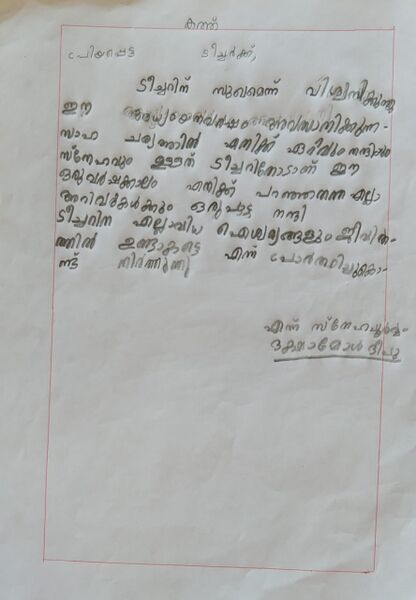 കത്ത്
പ്രിയപ്പെട്ട ടീച്ചർക്ക്,
ടീച്ചറിന് സുഖമെന്ന് വിശ്വസിക്കുന്നു
ഈ അദ്ധ്യയനവർഷം അവസാനിക്കുന്ന-
സാഹ ചര്യത്തിൽ എനിക്ക് ഏറ്റവും നന്ദിയും
സ്നേഹവും ഉള്ളത് ടീച്ചറിനോടാണ് ഈ
ഒരുവർഷക്കാലം എനിക്ക് പറഞ്ഞുതന്ന എല്ലാ
അറിവുകൾക്കും ഒരുപാട് നന്ദി
ടീച്ചറിന് എല്ലാവിധ ഐശ്വര്യങ്ങളും ജീവിത-
ത്തിൽ ഉണ്ടാകട്ടെ എന്ന് പ്രാർത്ഥിച്ചുകൊ-
ണ്ട് നിർത്തുന്നു
എന്ന് സ്നേഹപൂർവ്വം-
ദീപു